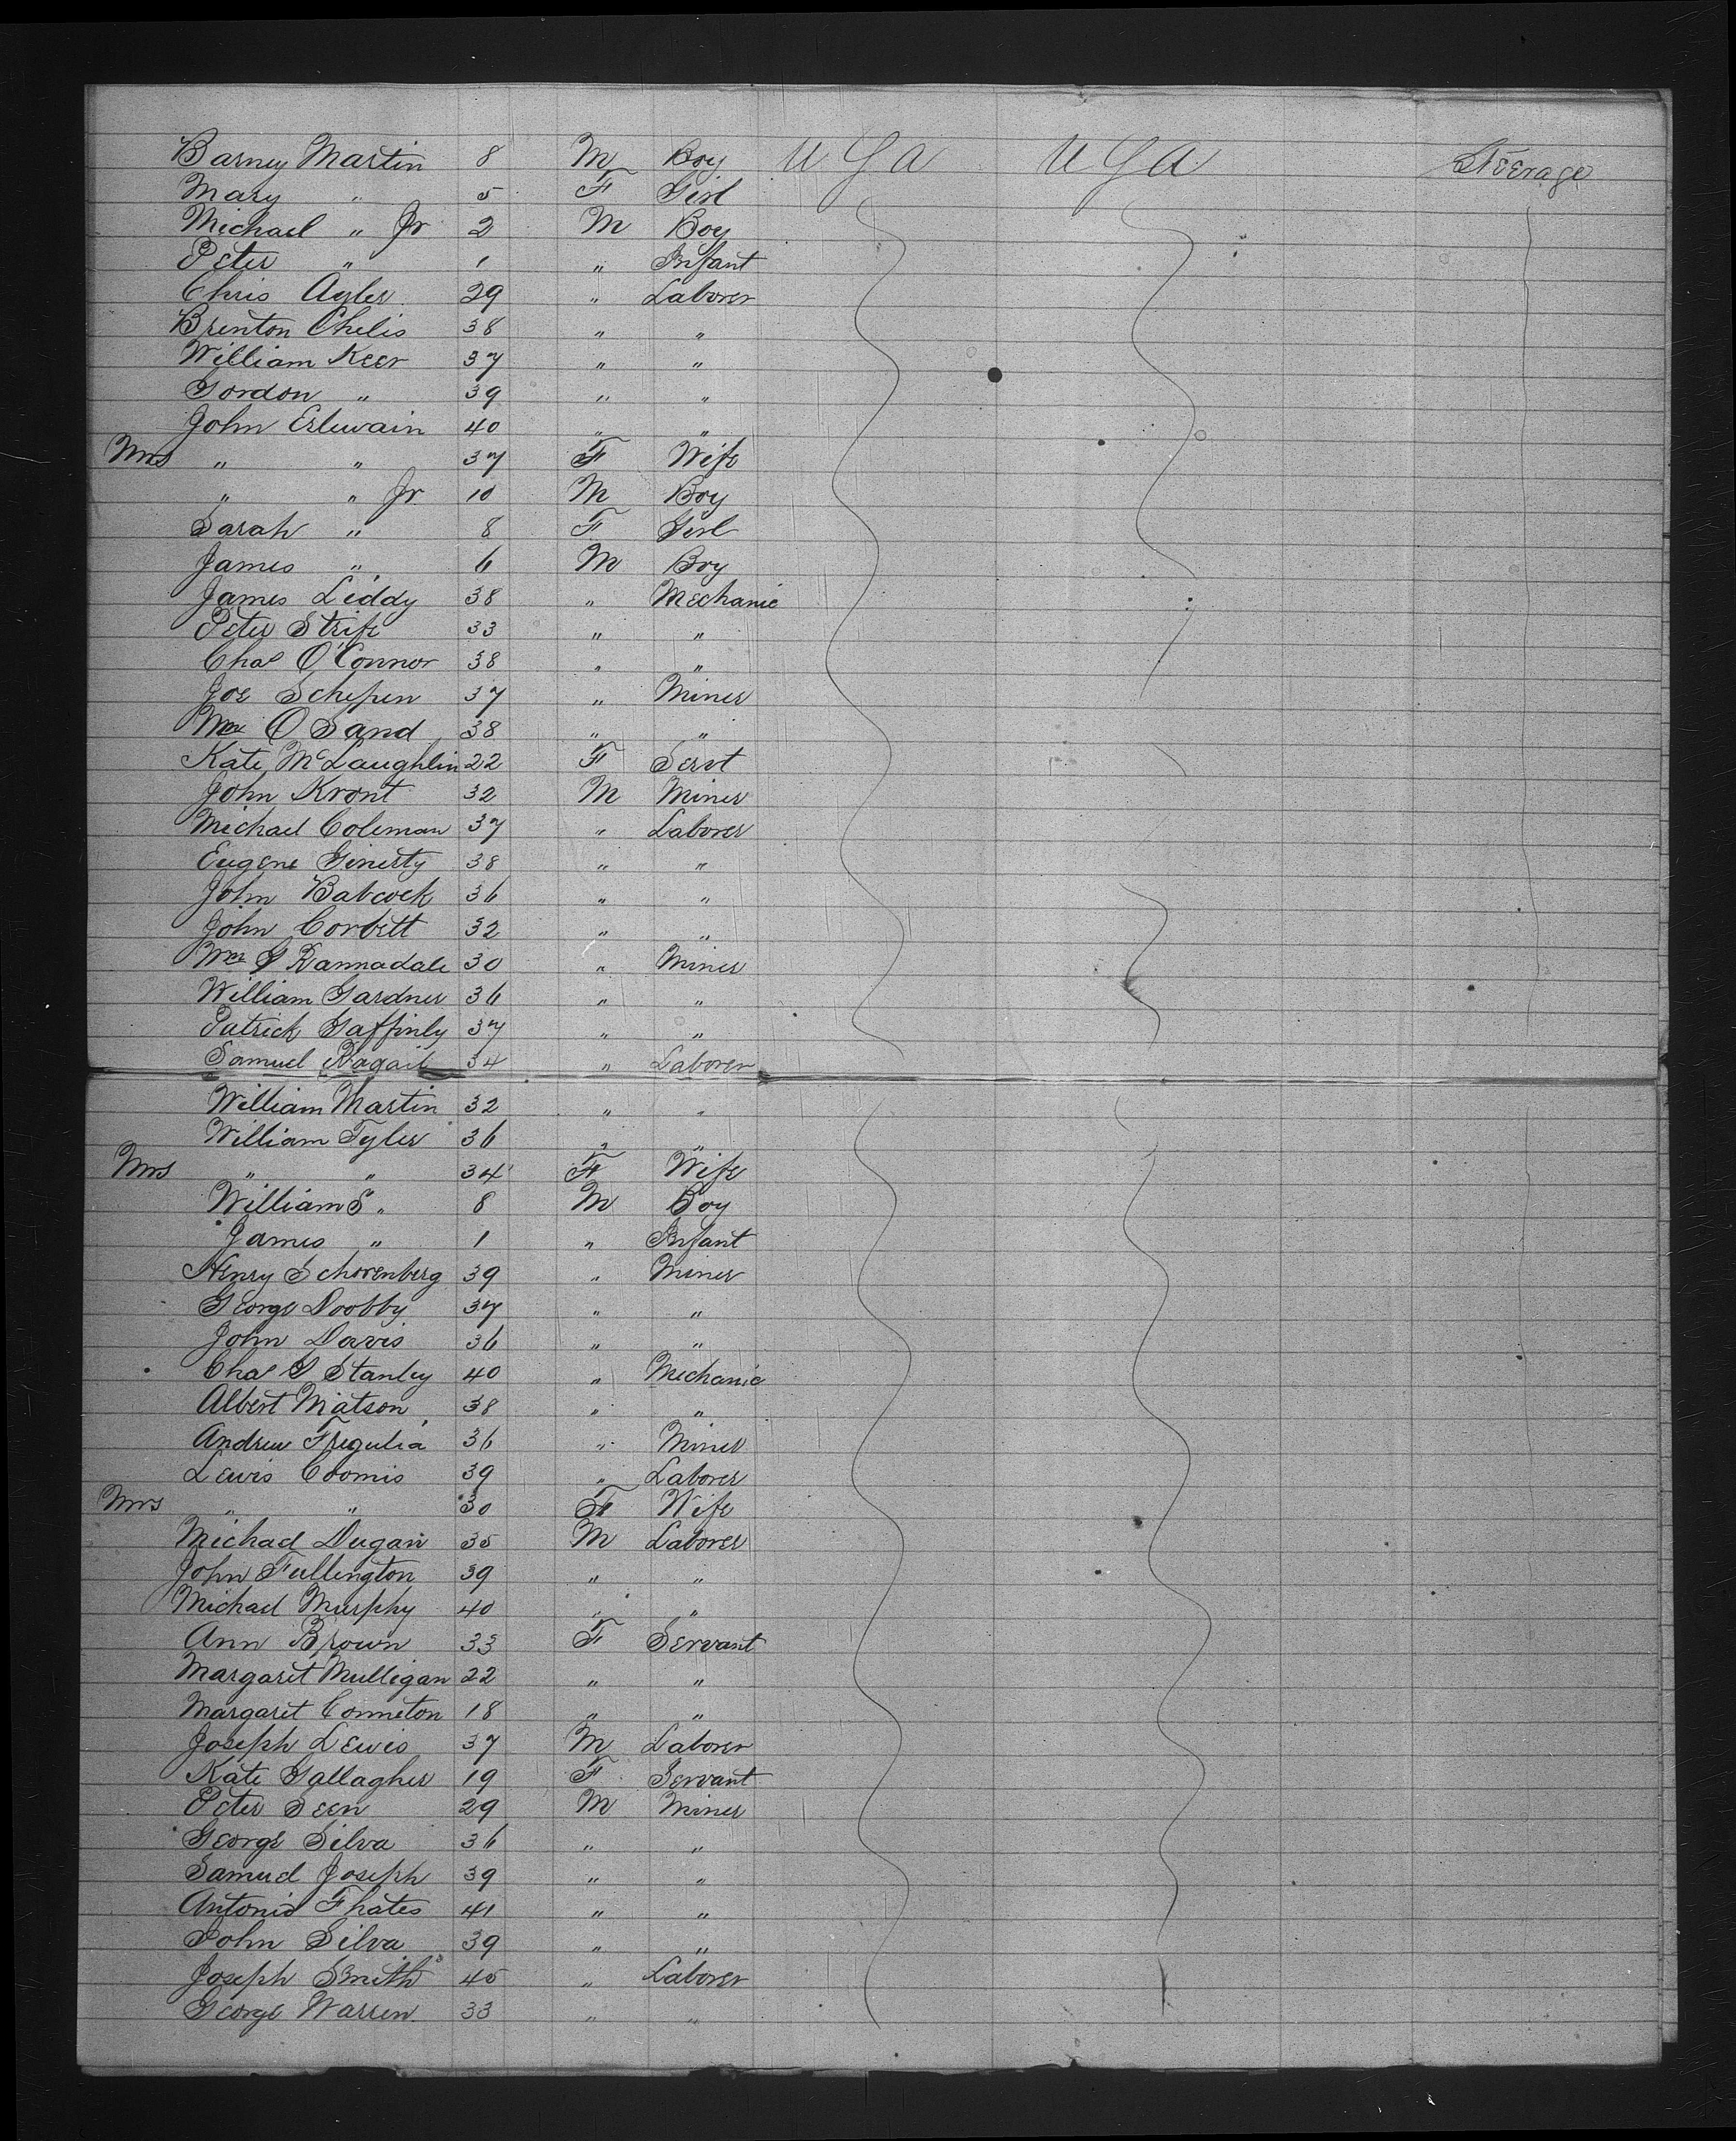 Barney Martin 8 M Boy U S A U S A Steerage
Mary " 5 F Girl
Michael " Jr 2 M Boy
Peter " 1 " Infant
Chris Ayler 29 " Laborer
Brenton Chelis 38 " "
William Keer 37 " "
Gordon " 39 " "
John Erlewain 40 " "
Mrs " " 37 F Wife
" " Jr 10 M Boy
Sarah " 8 F Girl
James " 6 M Boy
James Liddy 38 " Mechanic
Peter Strife 33 " "
Chas O'Connor 38 " "
Joe Schepen 37 " Miner
Wm O Sand 38 " "
Kate McLaughlin 22 F Servt
John Kront 32 M Miner
Michael Coleman 37 " Laborer
Eugene Ginerty 38 " "
John Babcock 36 " "
John Corbett 32 " "
Wm G Rannadale 30 " Miner
William Gardner 36 " "
Patrick Gaffinly 37 " "
Samuel Ragail 34 " Laborer
William Martin 32 " "
William Tyler 36 " "
Mrs " " 34 F Wife
William S " 8 M Boy
James " 1 " Infant
Henry Schorenberg 39 " Miner
George Doobby 37 " "
John Davis 36 " "
Chas G Stanley 40 " Mechanic
Albert Matson 38 " "
Andrew Fregulia 36 " Miner
Lewis Coomis 39 " Laborer
Mrs " " 30 F Wife
Michael Dugan 35 M Laborer
John Fullington 39 " "
Michael Murphy 40 " "
Ann Brown 33 F Servant
Margaret Mulligan 22 " "
Margaret Conneton 18 " "
Joseph Lewis 37 M Laborer
Kate Gallagher 19 F Servant
Peter Seen 29 M Miner
George Silva 36 " "
Samuel Joseph 39 " "
Antonio Fhates 41 " "
John Silva 39 " "
Joseph Smith 45 " Laborer
George Warren 33 " "